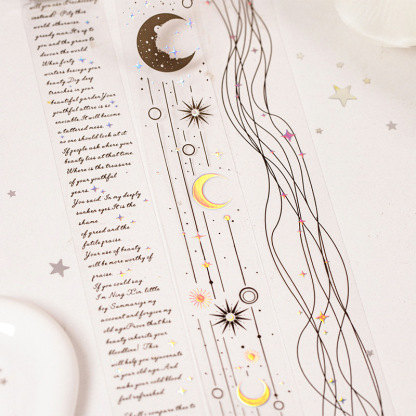 pity this
world, otherwise,
greedy man, It's up to
you and the grave to
devour the world.
When forty
winters besiege your
beauty, Dig deep
trenches in your
beautiful garden, Your
youthful attire is so
enviable. It will become
a tattered mess,
no one should look at it.
If people ask where your
beauty lies at that time
Where is the treasure
of your youthful
years.
You said, In my deeply
sunken eyes. It is the
shame
of greed and the
futile praise.
Your use of beauty
will be more worthy of
praise,
If you could say,
I'm Ning Xin, little
boy Summarize my
account and forgive my
old age, Prove that his
beauty inherits your
bloodline! This
will help you rejuvenate
in your old age, And
make your cold blood
feel refreshed.
Shall I compare thee to